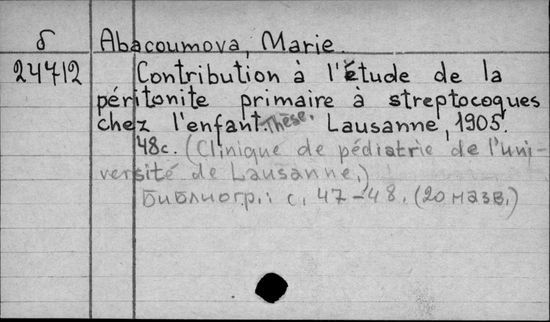 б Abacoumova, Marie.
24712 Contribution à l'étude de la
péritonite primaire à streptocoques
chez l'enfant. Thèse. Lausanne, 1905.
48c. (Clinique de pédiatrie de l'uni-
versité de Lausanne.)
Библиогр.: с. 47-48. (20 назв.)